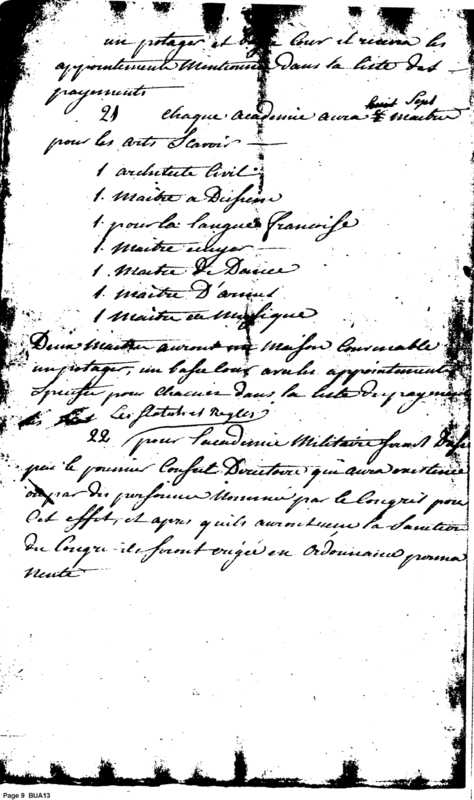 un potager et basse Cour il recevra les
appointements Mentionné dans la liste des
payements
21 chaque academie aura huit Sept maitres
pour les arts Scavoir —
1 architecte Civil
1. Maitre a Dessiner
1. pour la langue francoise
1. Maitre
1. Maitre de Dance
1. Maitre D'armes
1 Maitre de Musique
Maitre auront une Maison Convenable
un potager, un basse Cour avec les appointements
Specifié pour chacun dans la liste de payement
Les Statuts et Regles
22 pour l'academie Militaire seront
le premier Conseil Directoire qui aura existence
ou par des personnes Nommé par le Congrés pour
Cet effet, et apres qu'ils auront la Sanction
du Congre ils seront erigée en Ordonnance perma
nente
Page 9 BUA13